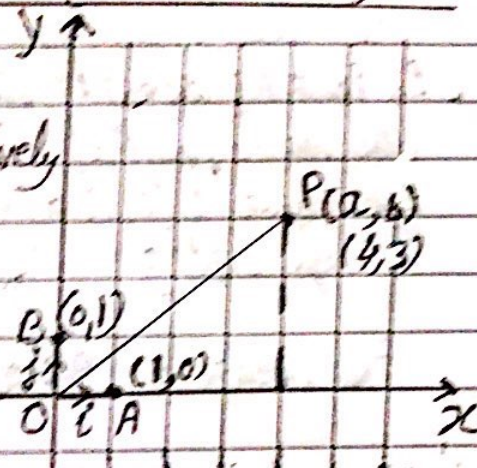 y
vely
P(a,b)
(4,3)
B (0,1)
j
(1,0)
O i A x